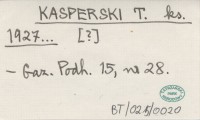 KASPERSKI T. ks.
1927... [?]
- Gaz. Podh. 15, nr 28.
BT/021/0020